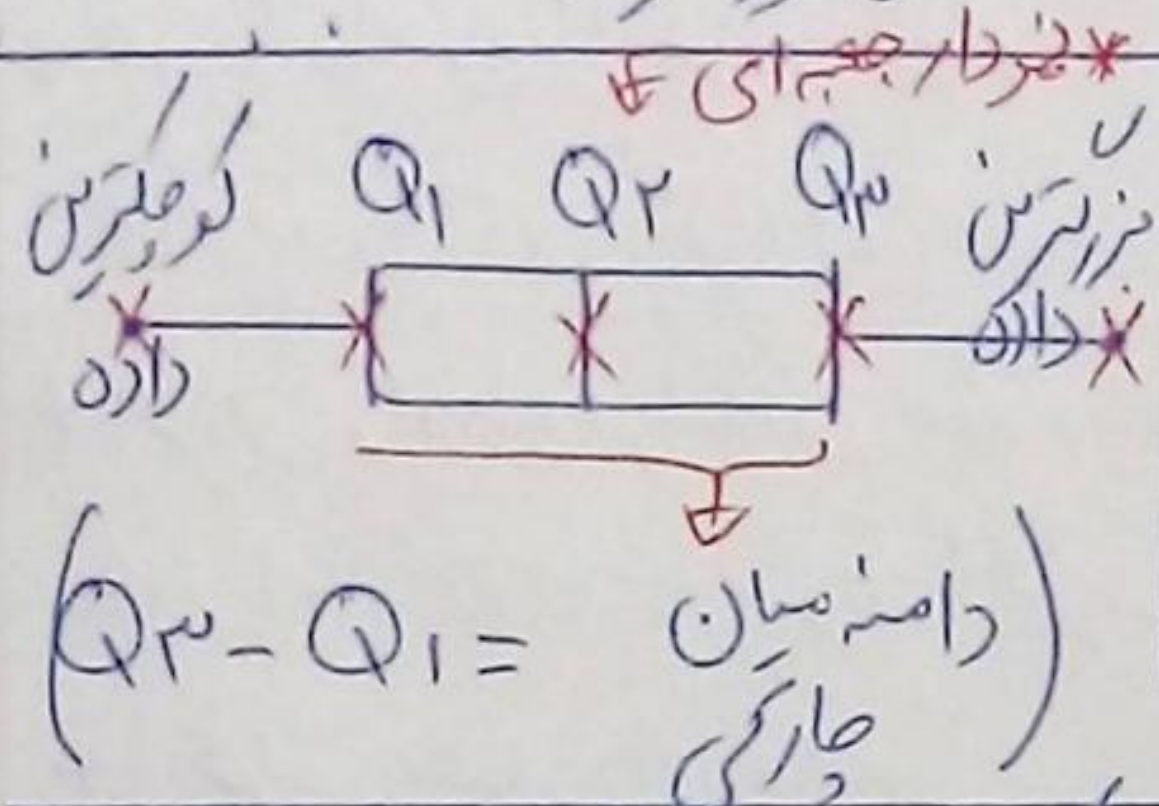 * نمودار جعبه ای ↓
کوچکترین داده
Q۱ Q۲ Q۳
بزرگترین داده
(Q۳ - Q۱ = دامنه میان
چارکی)